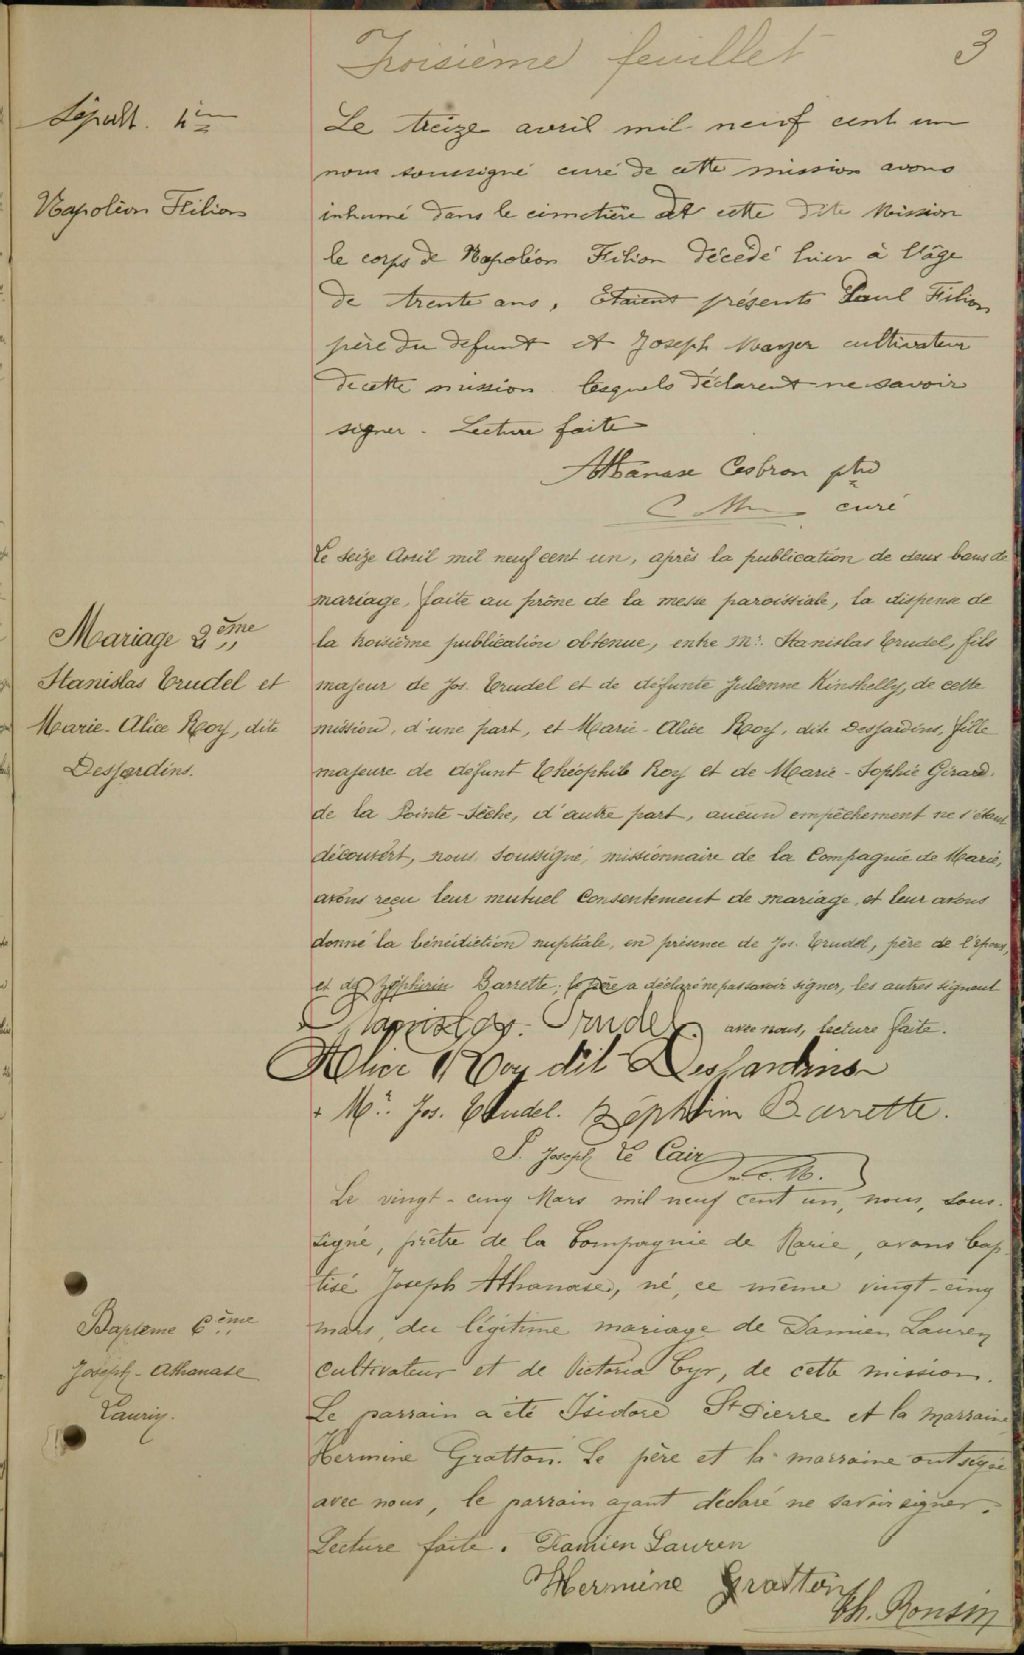 Troisième feuillet
3
Sépult. 4ième
Napoléon Filion
Le treize avril mil neuf cent un
nous soussigné curé de cette mission avons
inhumé dans le cimetière de cette dite Mission
le corps de Napoléon Filion décédé hier à l'âge
de trente ans, Étaient présents Paul Filion
père du défunt et Joseph Mayer cultivateur
de cette mission lesquels déclarent ne savoir
signer. Lecture faite
Athanase Cesbron ptre
curé
Mariage 2ème
Stanislas Trudel et
Marie-Alice Roy, dite
Desjardins.
Le seize Avril mil neuf cent un, après la publication de deux bans de
mariage, faite au prône de la messe paroissiale, la dispense de
la troisième publication obtenue, entre Mr. Stanislas Trudel, fils
majeur de Jos. Trudel et de défunte Julienne Kinshelly, de cette
mission, d'une part, et Marie-Alice Roy, dite Desjardins, fille
majeure de défunt Théophile Roy et de Marie-Sophie Girard,
de la Pointe-Sèche, d'autre part, aucun empêchement ne s'étant
découvert, nous, soussigné, missionnaire de la Compagnie de Marie,
avons reçu leur mutuel consentement de mariage, et leur avons
donné la bénédiction nuptiale, en présence de Jos. Trudel, père de l'époux,
et de Zéphirin Barrette; le père a déclaré ne pas savoir signer, les autres signent
avec nous, lecture faite.
Stanislas Trudel
Alice Roy dit Desjardins
+ Mr. Jos. Trudel. Zéphirin Barrette.
P. Joseph Le Cair
m.C.M.
Baptême 6ème
Joseph-Athanase
Laurin.
Le vingt-cinq Mars mil neuf cent un, nous, sous-
signé, prêtre de la Compagnie de Marie, avons bap-
tisé Joseph Athanase, né, ce même vingt-cinq
mars, du légitime mariage de Damien Lauren
cultivateur et de Victoria Cyr, de cette mission.
Le parrain a été Isidore St Pierre et la marraine
Hermine Gratton. Le père et la marraine ont signé
avec nous, le parrain ayant déclaré ne savoir signer.
Lecture faite. Damien Lauren
Hermine Gratton
Th. Ronsin